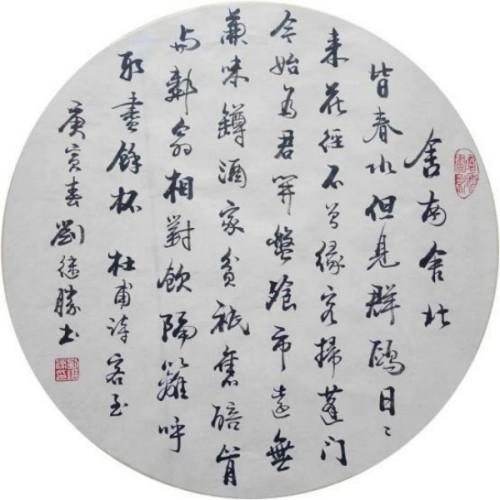 舍南舍北
皆春水但見群鷗日〻
來花徑不曾緣客掃蓬門
今始為君開盤飧市遠無
兼味鐏酒家貧祇舊醅肯
與鄰翁相對飲隔籬呼
取盡餘杯 杜甫詩客至
庚寅春劉継勝書